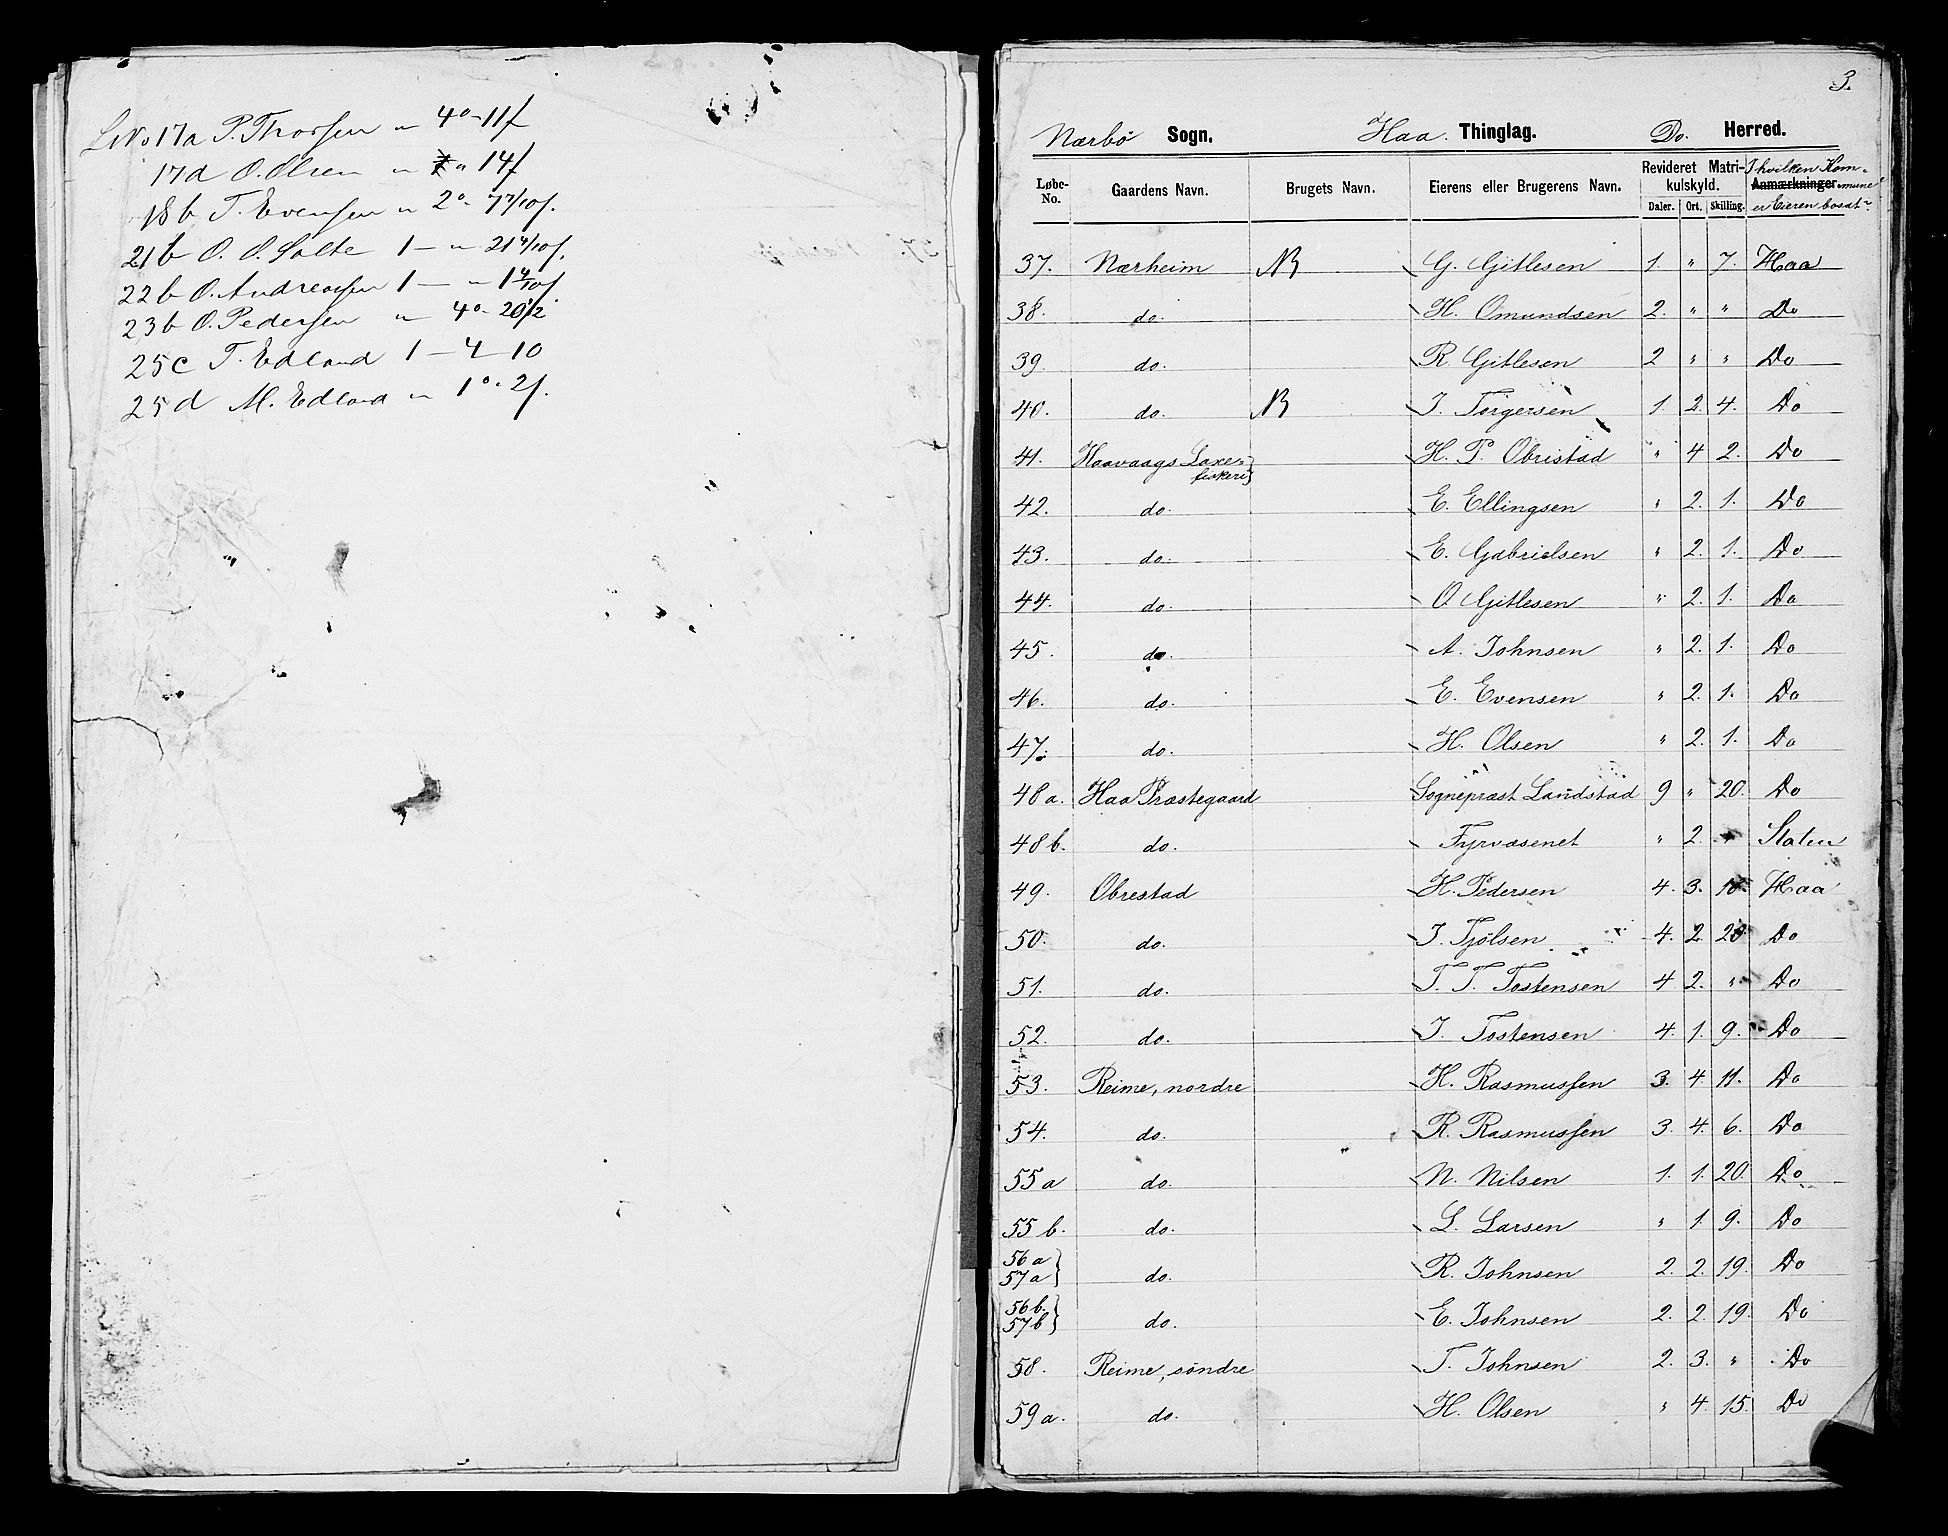 LNo 17a P. Thorsen " 4 o - 11 f
17d O. Olsen " " 14 f
18b T. Evensen " 2 o - 7 7/10 f.
21b O. O. Salte 1 — " - 21 4/10 f.
22b O. Andreassen 1 — " - 1 4/10 f
23b O. Pedersen " 4 o - 20 1/2
25c T. Edland 1 — 4 — 10
25d M. Edland " 1 o - 2 f.
3.
Nærbö Sogn. Haa. Thinglag. Do. Herred.
Løbe-No. Gaardens Navn. Brugets Navn. Eierens eller Brugerens Navn. Revideret Matrikulskyld. Daler. Ort. Skilling. Anmærkninger I hvilken Kommune er Eieren bosat?
37. Nærheim NB G. Gitlesen 1. " 7. Haa
38. do. H. Omundsen 2. " " Do
39. do. R. Gitlesen 2 " " Do
40. do. NB I. Torgersen 1. 2. 4. Do
41. Haavaags Laxefiskeri} H. P. Obristad " 4 2. Do
42. do. E. Ellingsen " 2. 1. Do
43. do. E. Gabrielsen " 2. 1. Do
44. do. O Gitlesen " 2. 1. Do
45. do. A. Johnsen " 2. 1. Do
46. do. E. Evensen " 2. 1. Do
47. do. H. Olsen " 2. 1. Do
48a. Haa Præstegaard Sognepræst Landstad 9 " 20. Do
48b. do. Fyrvæsenet " 2. " Staten
49. Obrestad H. Pedersen 4. 3. 10. Haa
50. do. I. Tjölsen 4. 2. 20. Do
51. do. T. T. Tostensen 4 2. " Do
52. do. I. Tostensen 4. 1. 9. Do
53. Reime, nordre H. Rasmussen 3. 4. 11. Do
54. do. R. Rasmussen 3. 4. 6. Do
55a do. N. Nilsen 1. 1. 20. Do
55b. do. L. Larsen " 1. 9. Do
56a 57a} do. R. Johnsen 2. 2. 19. Do
56b. 57b} do. E. Johnsen 2. 2. 19. Do
58. Reime, söndre T. Johnsen 2. 3. " Do
59a. do. H. Olsen " 4. 15. Do